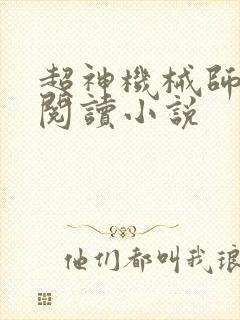 超神機械師
閱讀小说
他们都叫我琅